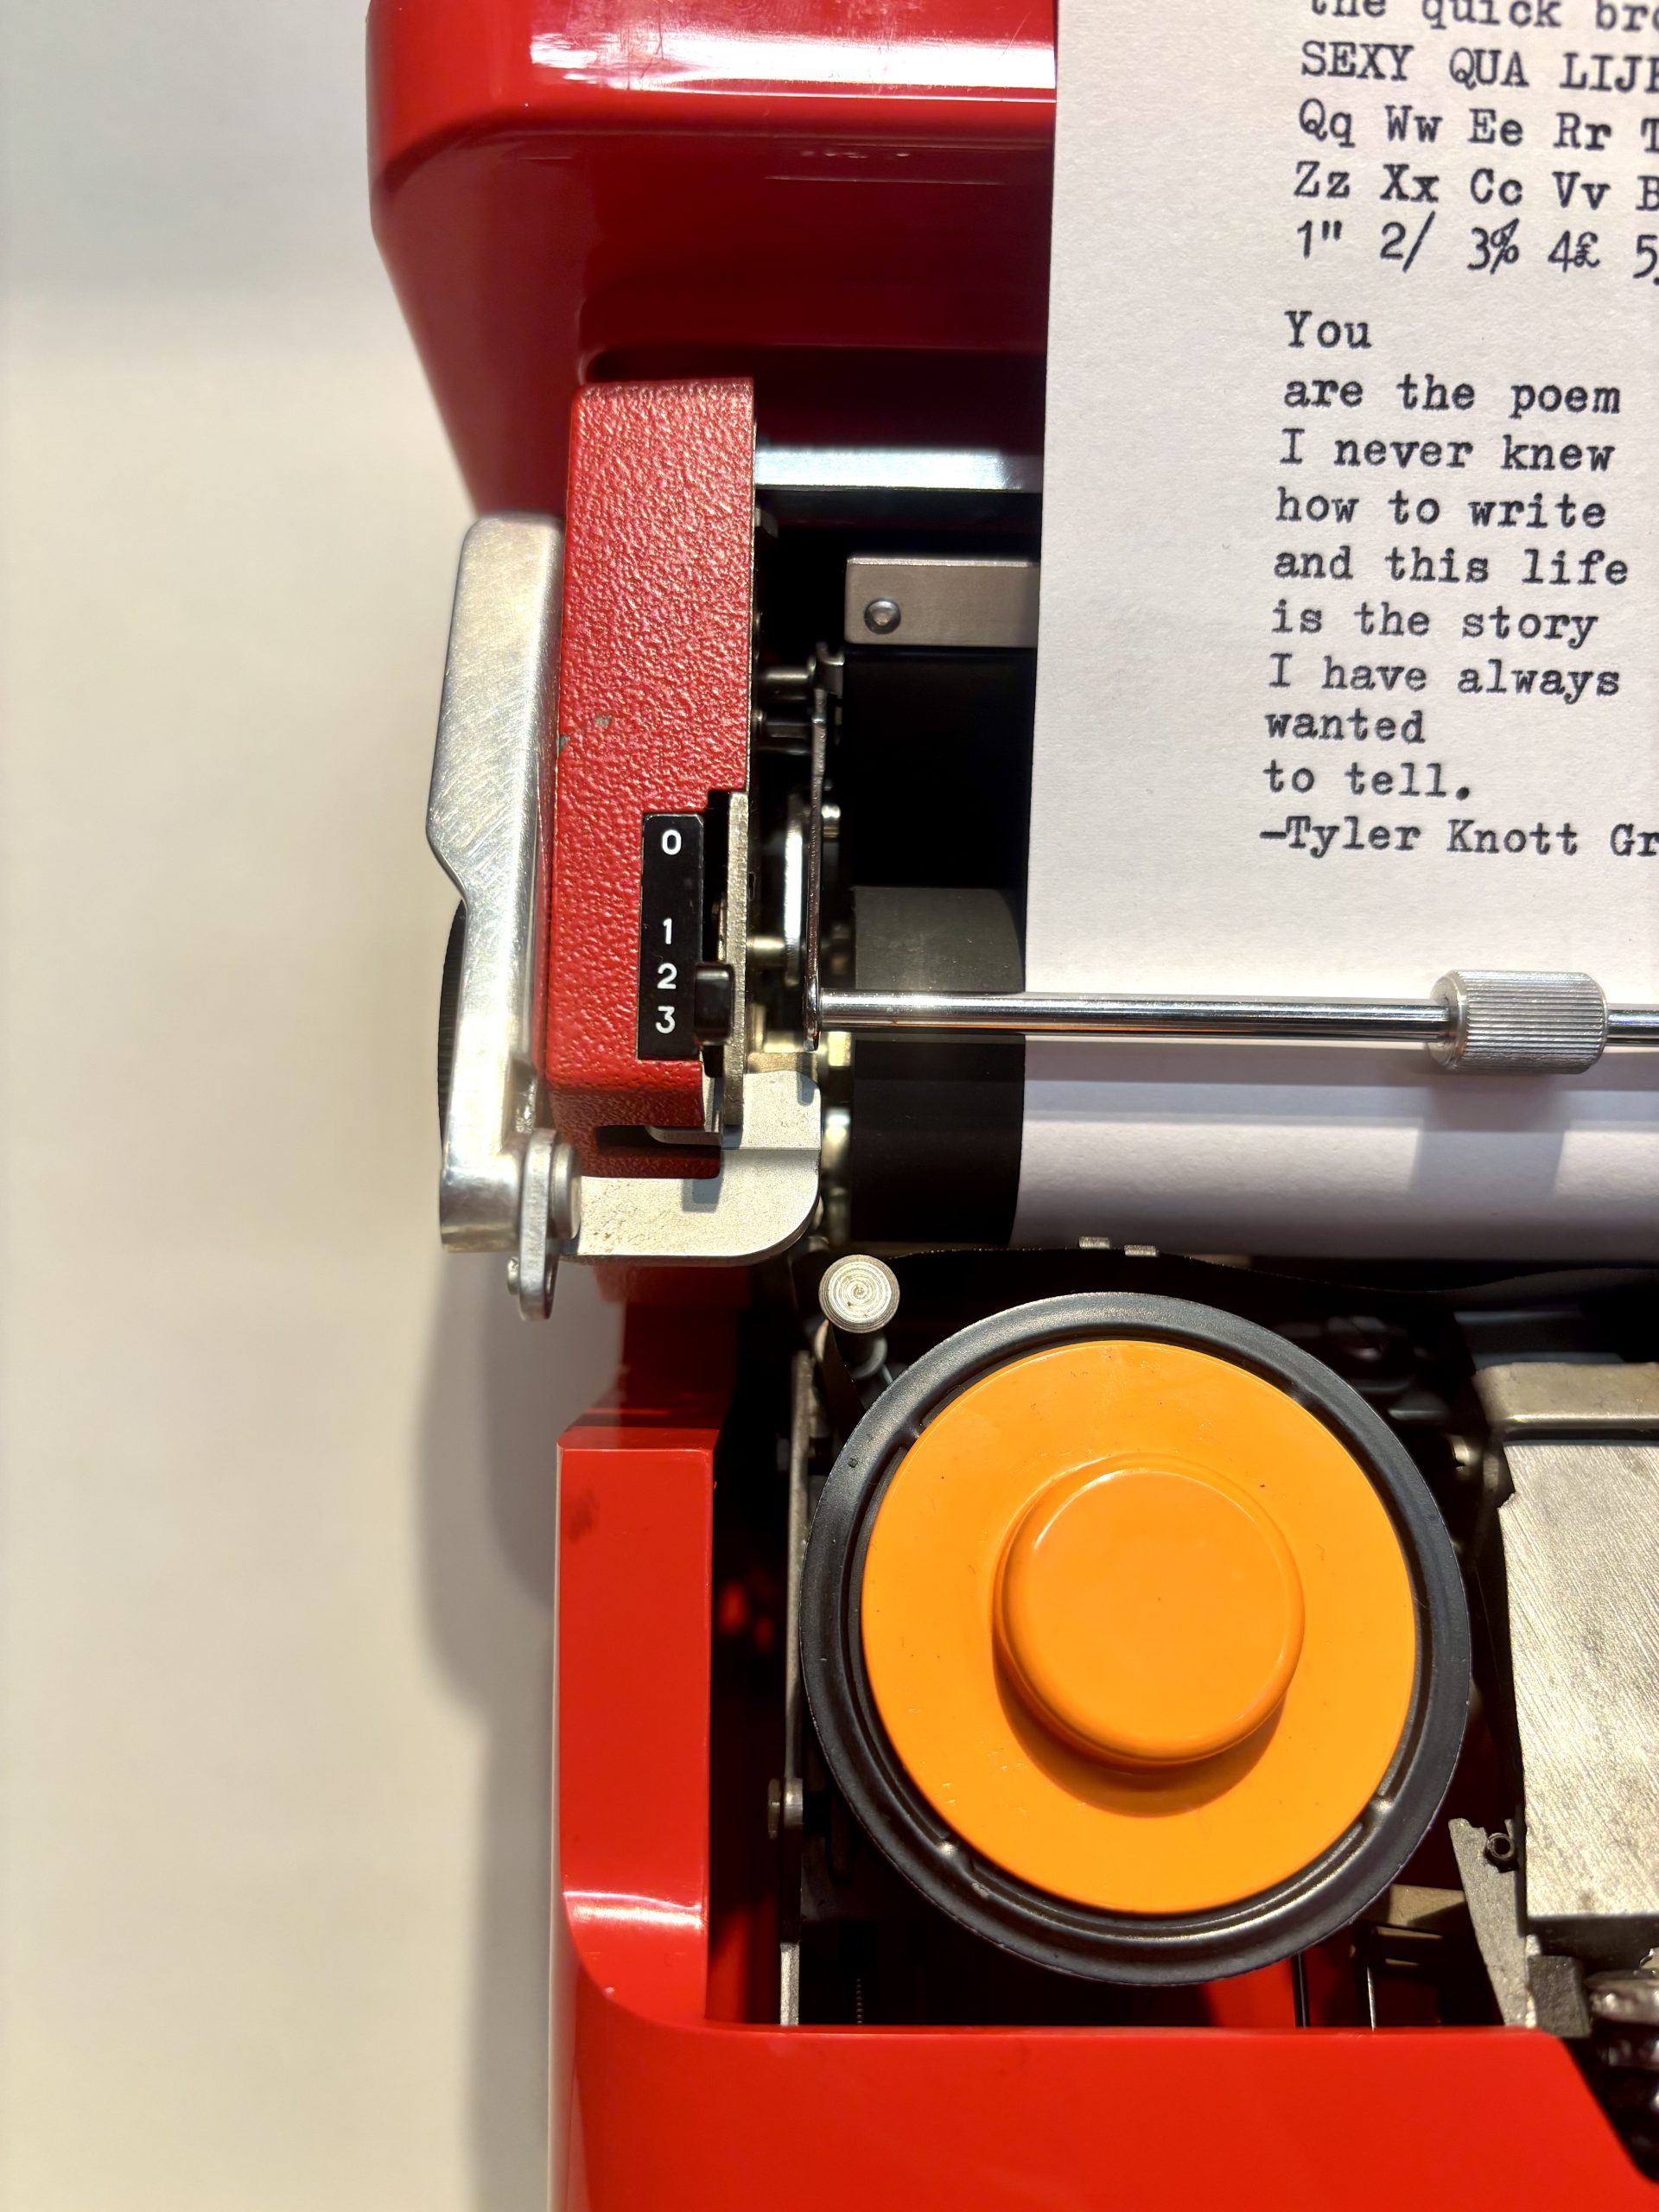 the quick
SEXY QUA
Qq Ww Ee Rr
Zz Xx Cc Vv
1" 2/ 3% 4£ 5
You
are the poem
I never knew
how to write
and this life
is the story
I have always
wanted
to tell.
—Tyler Knott
0
1
2
3